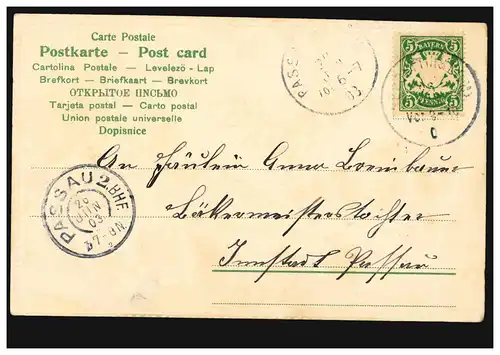 Carte Postale
Postkarte – Post card
Cartolina Postale – Levelező-Lap
Brefkort – Briefkaart – Brevkort
ОТКРЫТОЕ ПИСЬМО
Tarjeta postal – Carto postal
Union postale universelle
Dopisnice
PASS
6-7
03
BAYERN
5 5
5 PFENNIG 5
An Fräulein Anna
Bäckermeisterstochter
Innstadt Passau
PASSAU 2. BHF
26
JUN
03